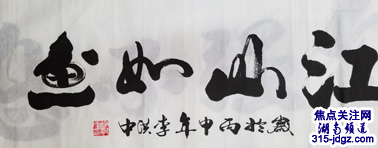 江山如画
岁於丙申年李洪中
焦点关注网
湖南频道
315-jdgz.com